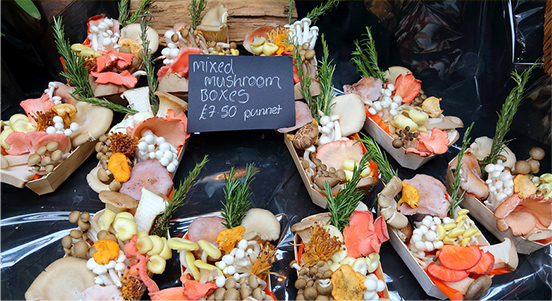 mixed
mushroom
BOXES
£7.50 punnet